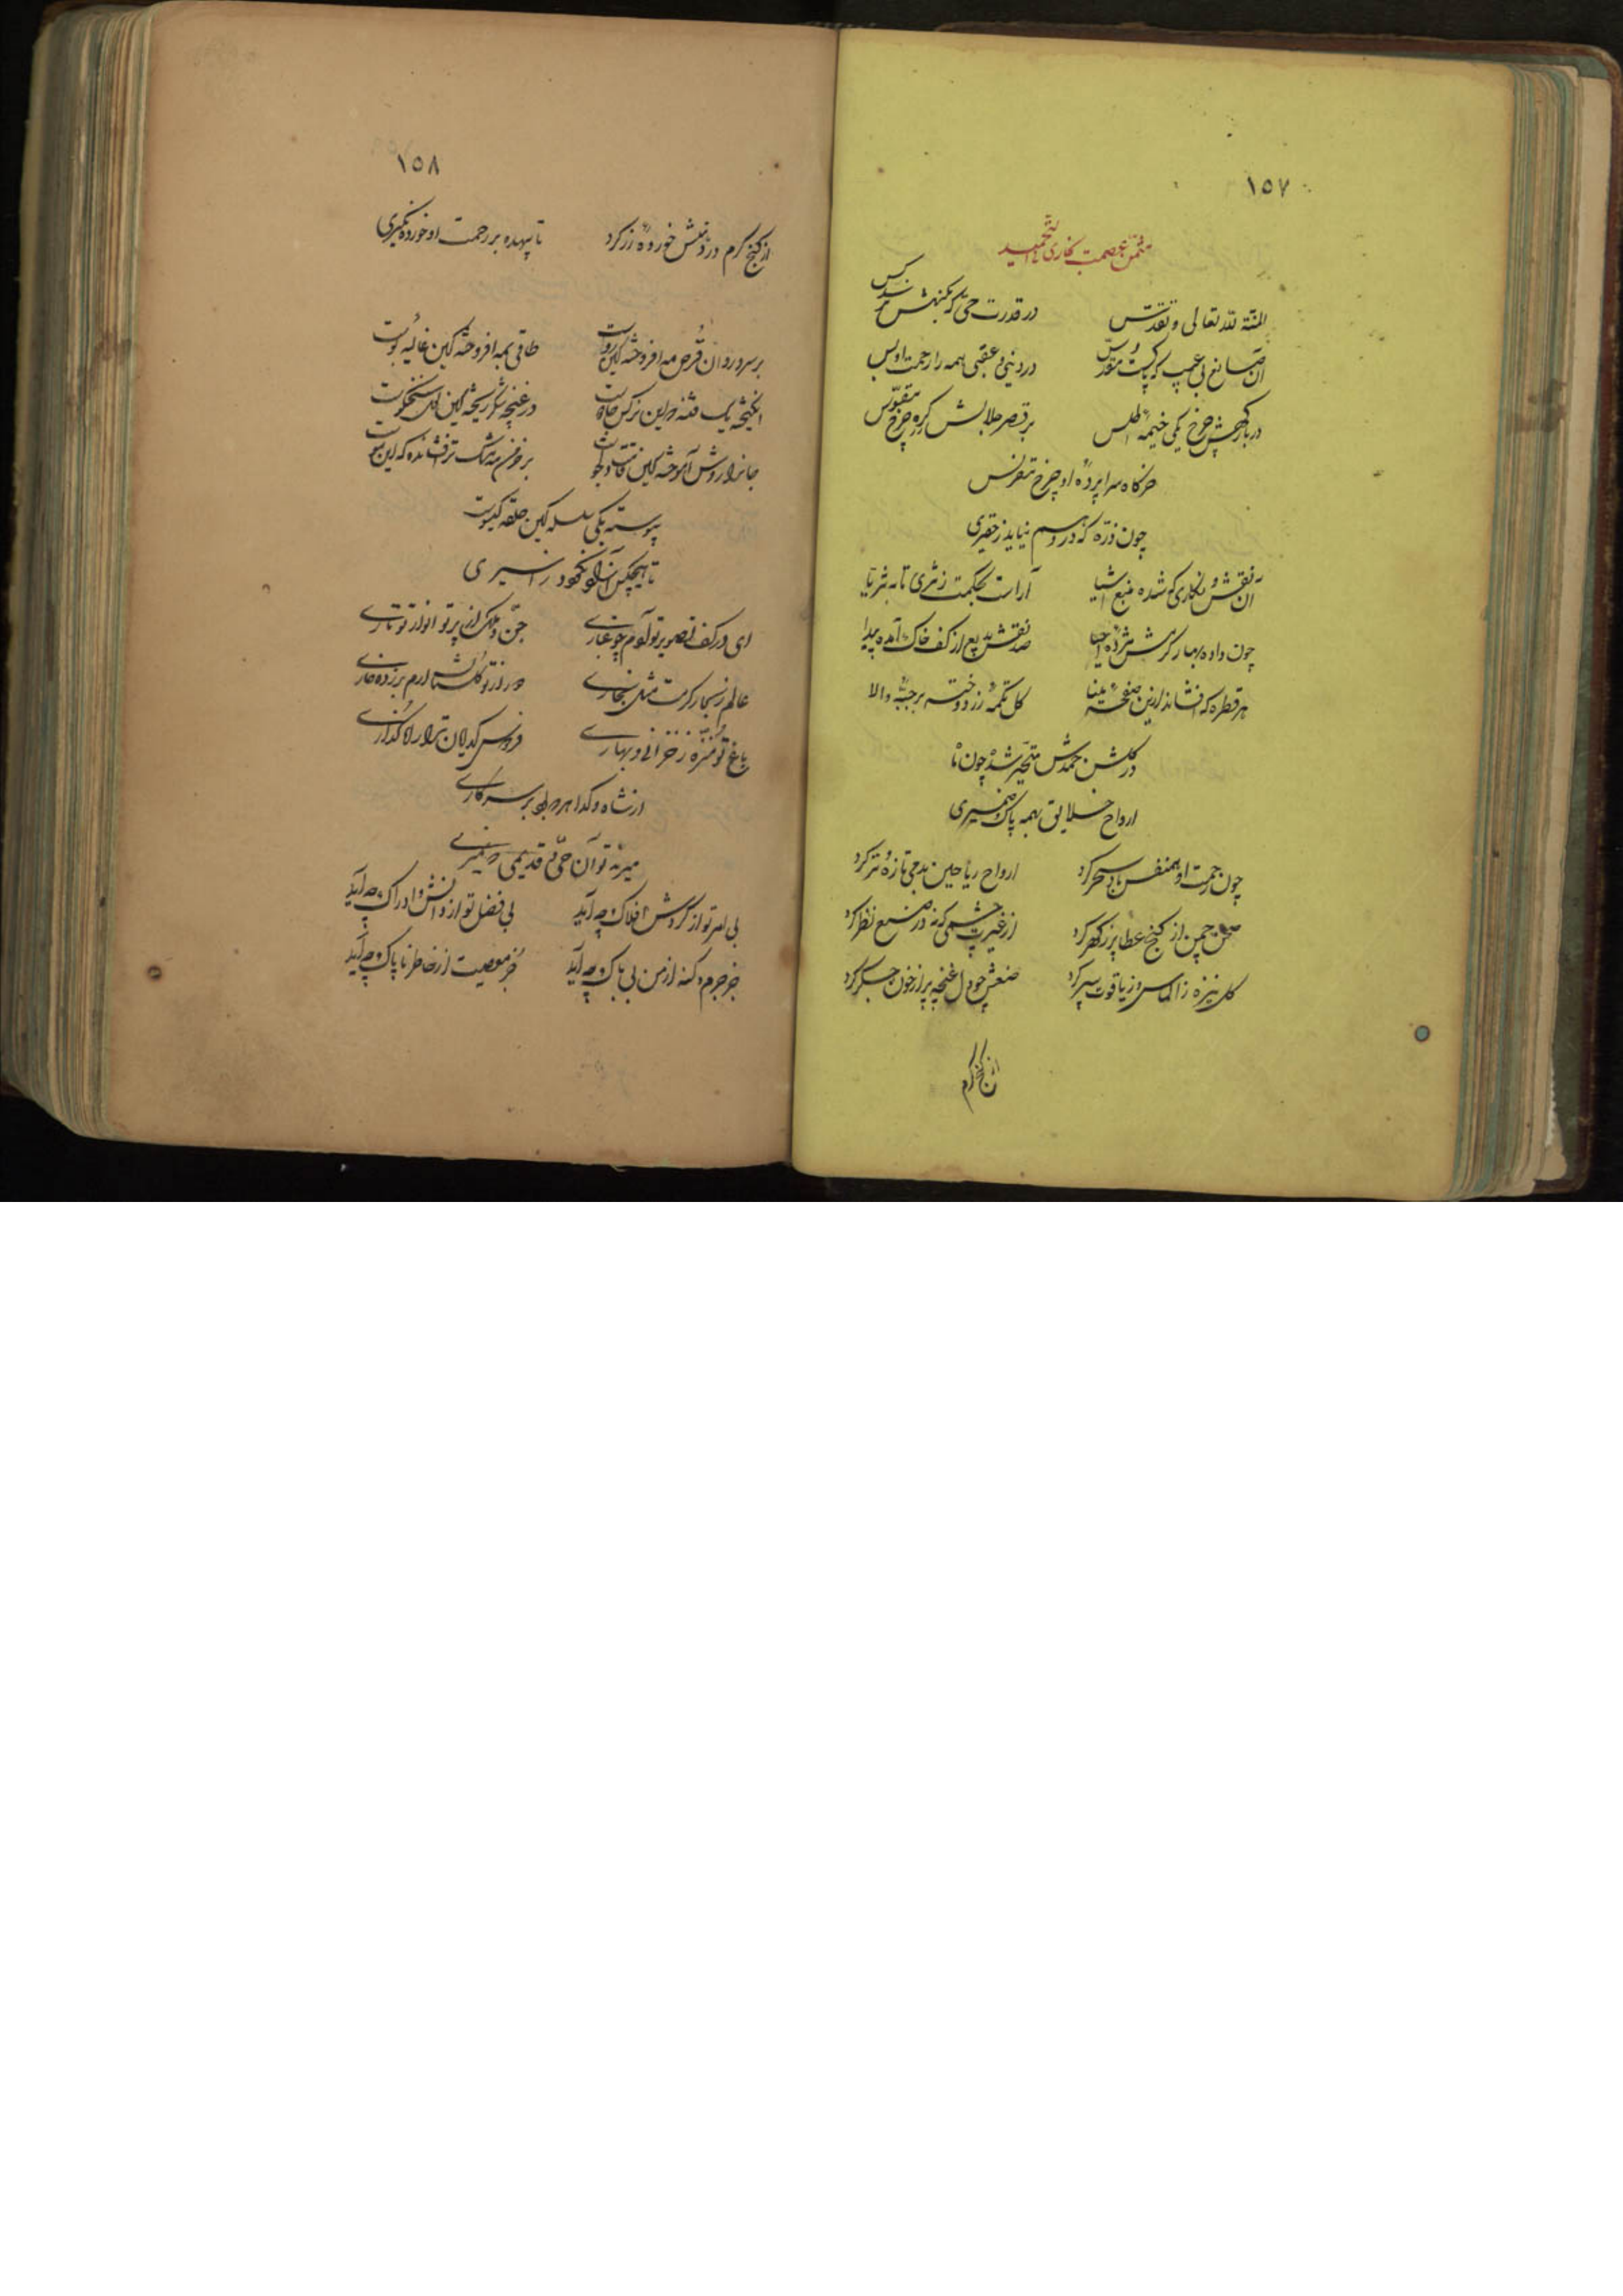 ١٥٧
مثمن عصمت بخاری التحمید
المنة لله تعالی و تقدس در قدرت حی که بکنهش نرسد کس
آن صانع بی عیب که پاکست و مقدس در دنیی و عقبی همه را رحمت او بس
در بارگهش چرخ یکی خیمهٔ اطلس بر قصر جلالش کرهٔ چرخ مقوس
خرگاه سراپردهٔ او چرخ مقرنس
چون ذره که در وهم نیاید ز حقیری
آن نقش و نگاری که شده منبع اشیا آراست بحکمت ز ثری تا به ثریا
چون داده بهار کرمش مژدهٔ احیا صد نقش بدیع از کف خاک آمده پیدا
هر قطره که افشاند ازین صفحهٔ مینا گل تکمهٔ زر دوخته بر جبهٔ والا
در گلشن حمدش متحیر شده چون ما
ارواح خلایق بهمه پاک ضمیری
چون رحمت او همنفس باد سحر کرد ارواح ریاحین بدمی تازه و تر کرد
صحن چمن از گنج عطا پر ز گهر کرد از غیرت چشمی که نه در صنع نظر کرد
گل نیزه ز الماس و ز یاقوت سپر کرد صنعش چو دل غنچه پر از خون جگر کرد
از گنج کرم
١٥٨
از گنج کرم در دهنش خوردهٔ زر کرد تا بیهده بر رحمت او خورده نگیری
بر سرو روان قرص مه افروخته کین روست طاقی بمه افروخته کین غالیه بوست
انگیخته یک فتنه و این نرگس جادوست در غنچه شکر ریخته این لعل سخنگوست
جانرا روش آموخته کین قامت دلجوست بر خرمن مه مشک تر افشانده که این موست
پیوسته یکی سلسله کین حلقه گیسوست
تا هیچکس آنرا نکند
ای در کف تصویر تو آدم چو غباری جن و ملک از پرتو انوار تو تاری
عالم ز بحار کرمت مثل بخاری در گلستان ارم بر زده خاری
باغ تو منزه ز خزانی و بهاری فردوس گدایان ترا راه گذاری
از شاه و گدا هر بر سر کاری
میرند تو آن حی قدیمی نمیری
بی امر تو از گردش افلاک چه آید بی فضل تو از دانش و ادراک چه آید
جز جرم و گنه از من بی باک چه آید جز معصیت از خاطر ناپاک چه آید